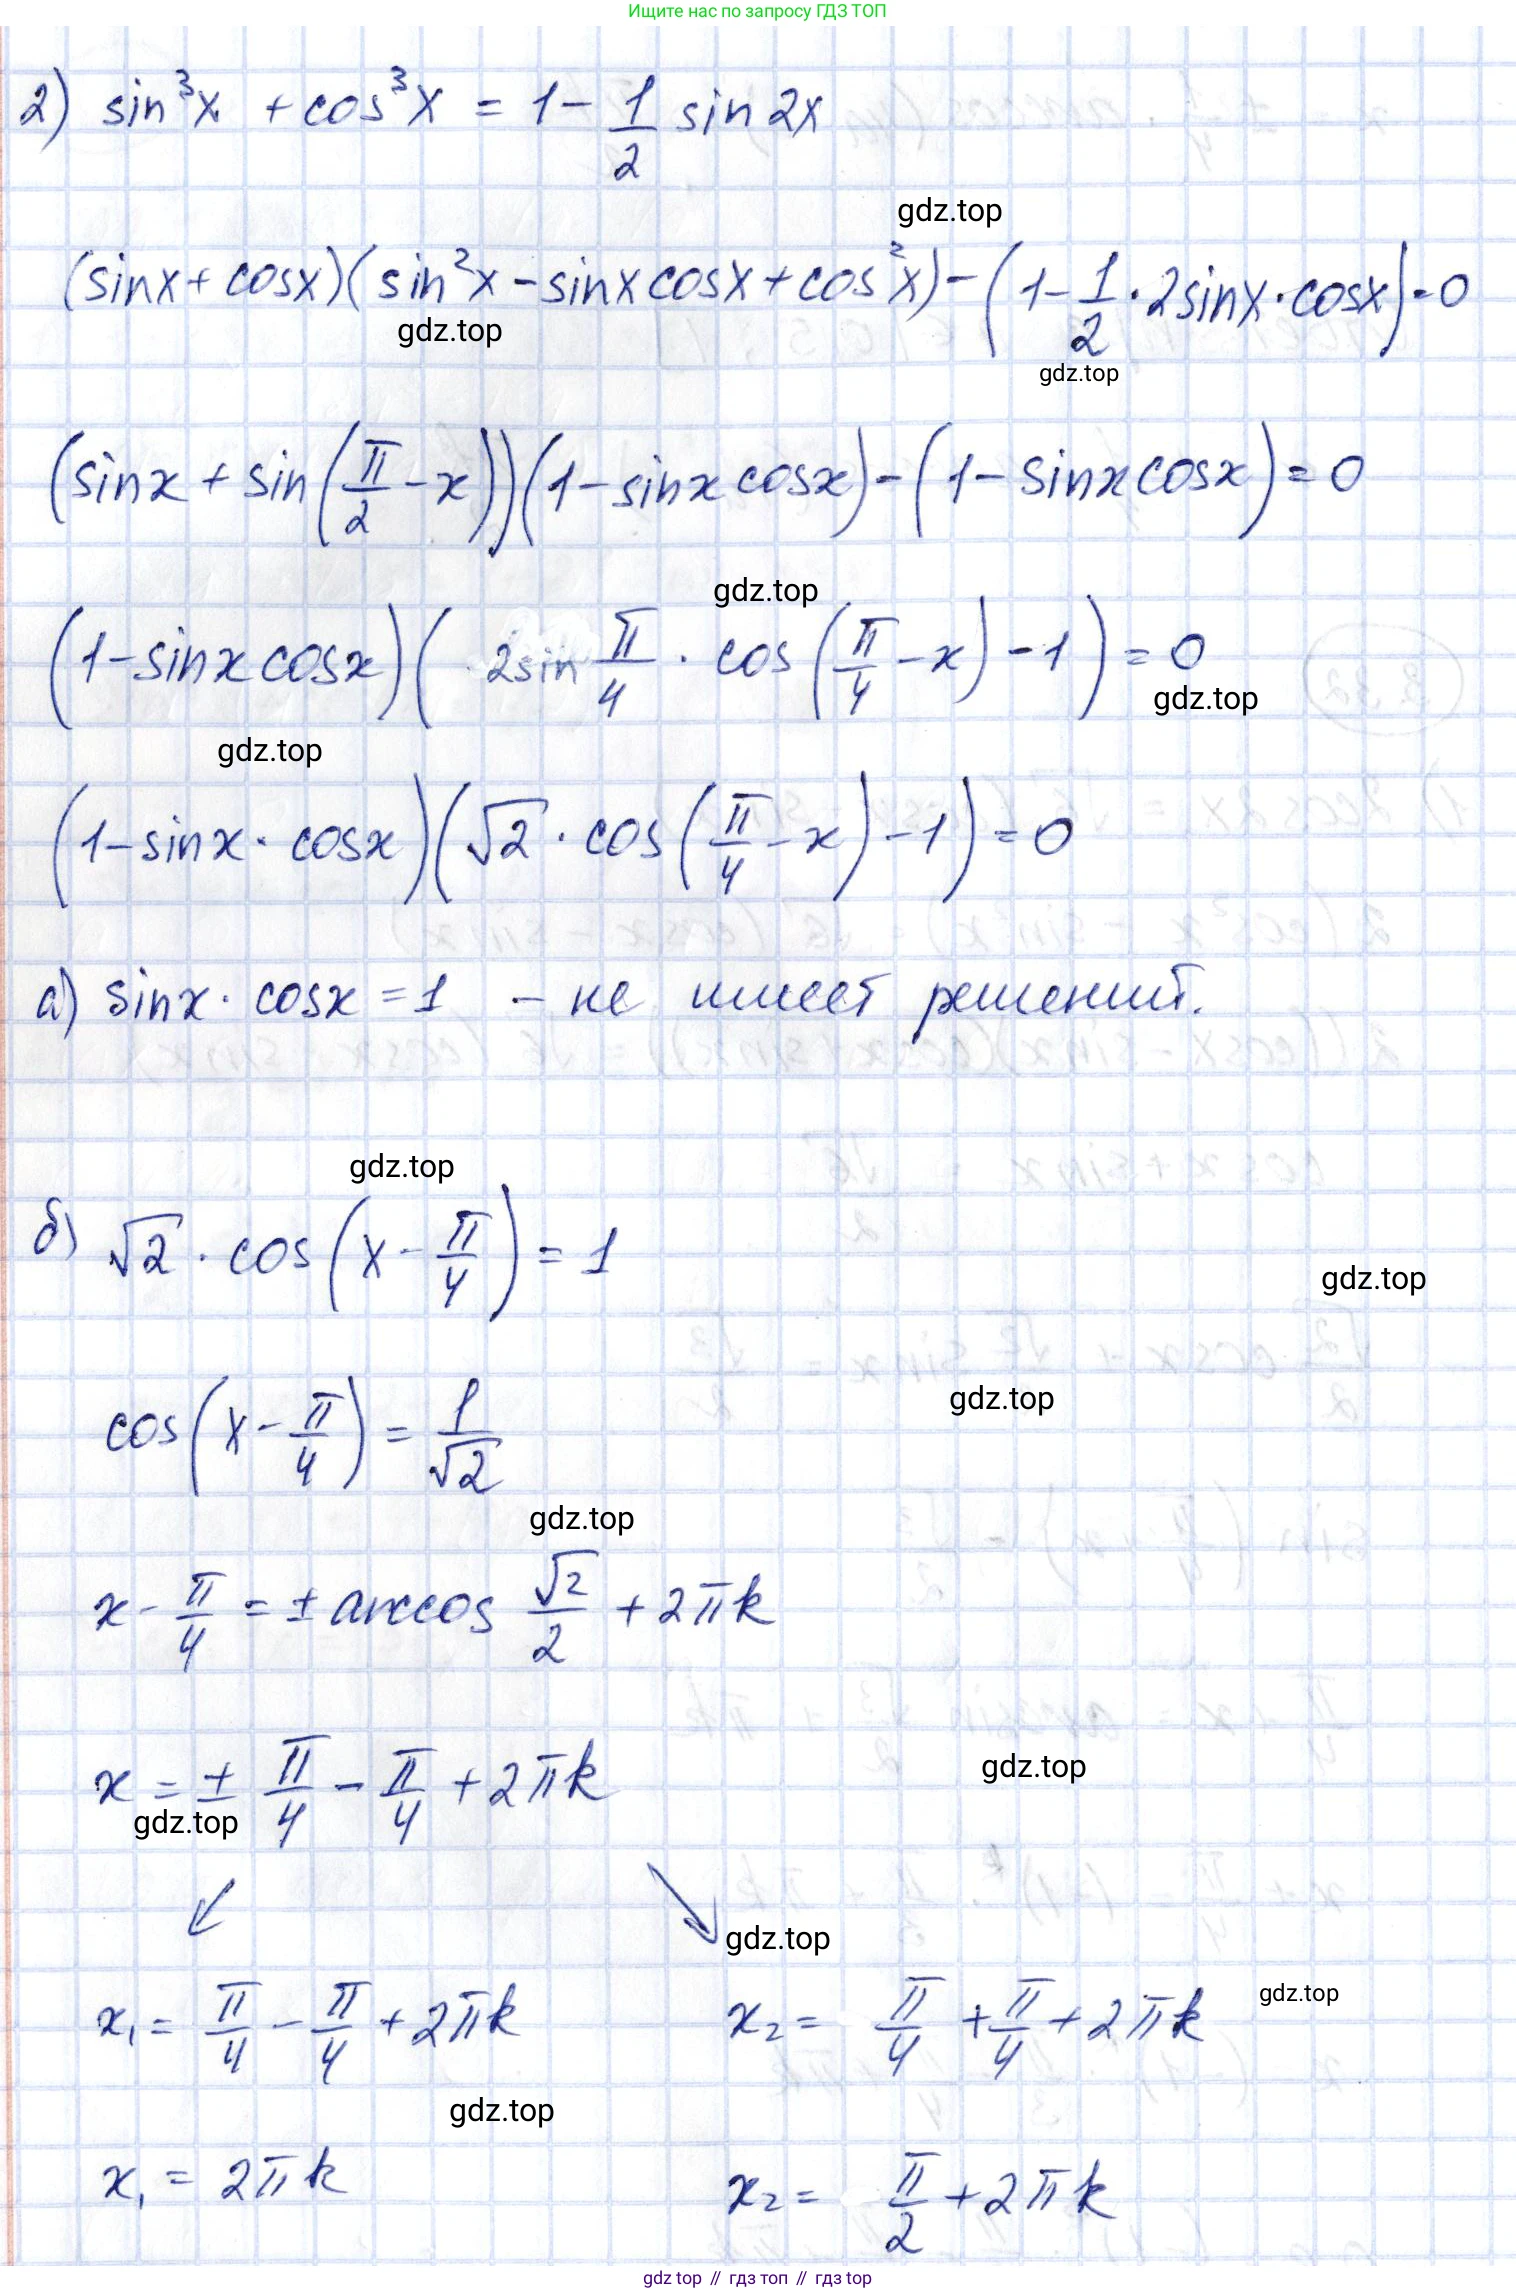 Ищите нас по запросу ГДЗ ТОП
2) sin³x + cos³x = 1 - 1/2 sin 2x
gdz.top
(sinx + cosx)(sin²x - sinx cosx + cos²x) - (1 - 1/2 · 2sinx · cosx) = 0
gdz.top
gdz.top
(sinx + sin(π/2 - x))(1 - sinx cosx) - (1 - sinx cosx) = 0
gdz.top
(1 - sinx cosx)(2sin π/4 · cos(π/4 - x) - 1) = 0
gdz.top
gdz.top
(1 - sinx · cosx)(√2 · cos(π/4 - x) - 1) = 0
а) sinx · cosx = 1 - не имеет решений.
gdz.top
б) √2 · cos(x - π/4) = 1
gdz.top
gdz.top
cos(x - π/4) = 1/√2
gdz.top
x - π/4 = ± arccos √2/2 + 2πk
gdz.top
x = ± π/4 - π/4 + 2πk
gdz.top
↙ ↘
gdz.top
gdz.top
x₁ = π/4 - π/4 + 2πk x₂ = π/4 + π/4 + 2πk
gdz.top
x₁ = 2πk x₂ = π/2 + 2πk
gdz top // гдз топ // гдз top